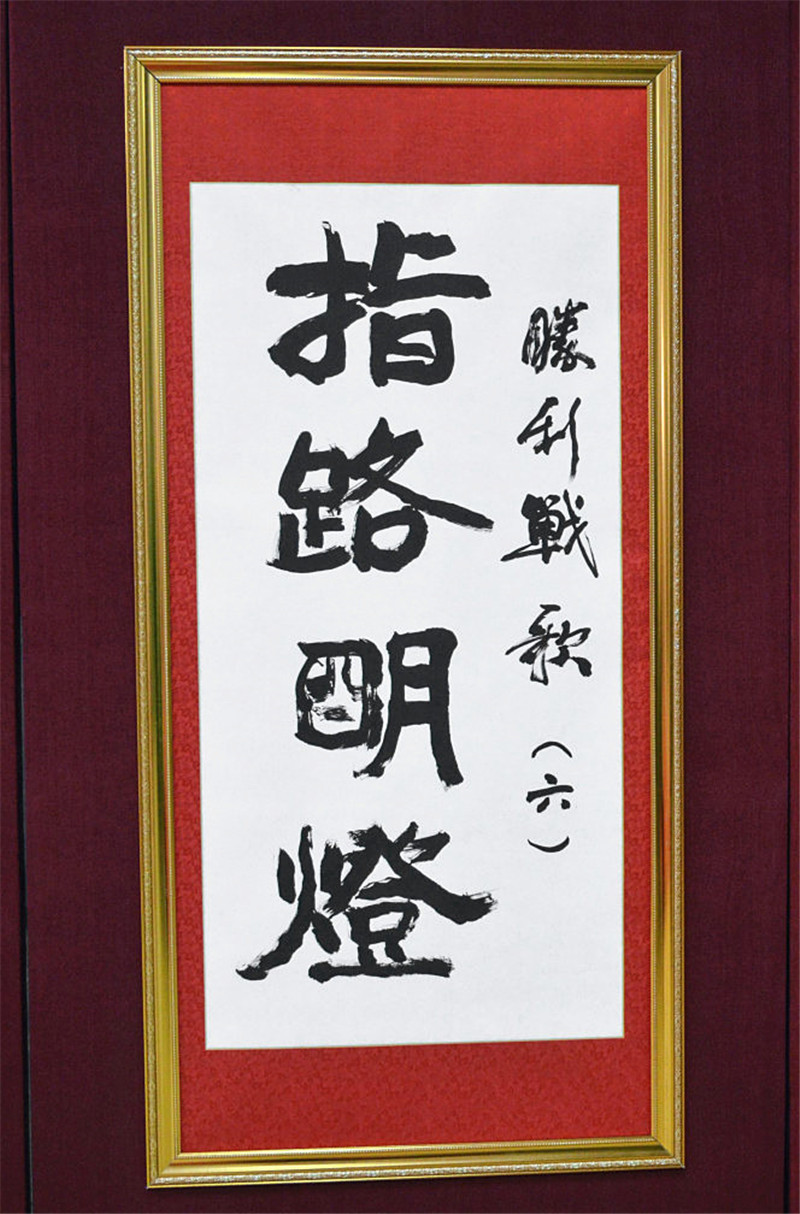 勝利戰歌（六）
指路明燈